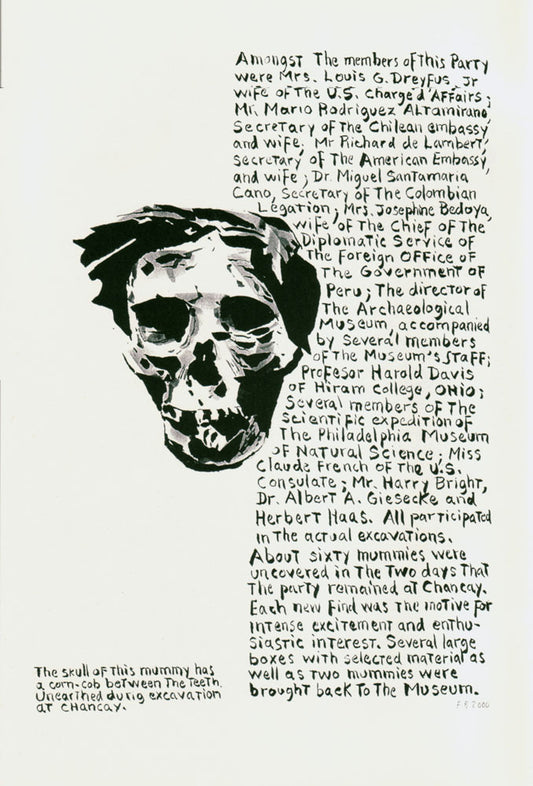 Amongst The members of This Party
were Mrs. Louis G. Dreyfus, Jr
wife of The U.S. Chargé d'Affairs;
Mr. Mario Rodriguez Altamirano,
Secretary of The Chilean embassy
and wife; Mr Richard de Lambert,
secretary of The American Embassy,
and wife; Dr. Miguel Santamaria
Cano, Secretary of The Colombian
Legation; Mrs. Josephine Bedoya,
wife of The Chief of The
Diplomatic Service of
The Foreign Office of
The Government of
Peru; The director of
The Archaeological
Museum, accompanied
by several members
of The Museum's Staff;
Profesor Harold Davis
of Hiram College, Ohio;
Several members of The
Scientific expedition of
The Philadelphia Museum
of Natural Science; Miss
Claude French of The U.S.
Consulate; Mr. Harry Bright,
Dr. Albert A. Giesecke and
Herbert Haas. All participated
in The actual excavations.
About sixty mummies were
uncovered in The Two days That
The party remained at Chancay.
Each new find was The motive for
intense excitement and enthu-
siastic interest. Several large
boxes with selected material as
well as Two mummies were
brought back To The Museum.
The skull of this mummy has
a corn-cob between The Teeth.
Unearthed durig excavation
at Chancay.
F.B. 2000